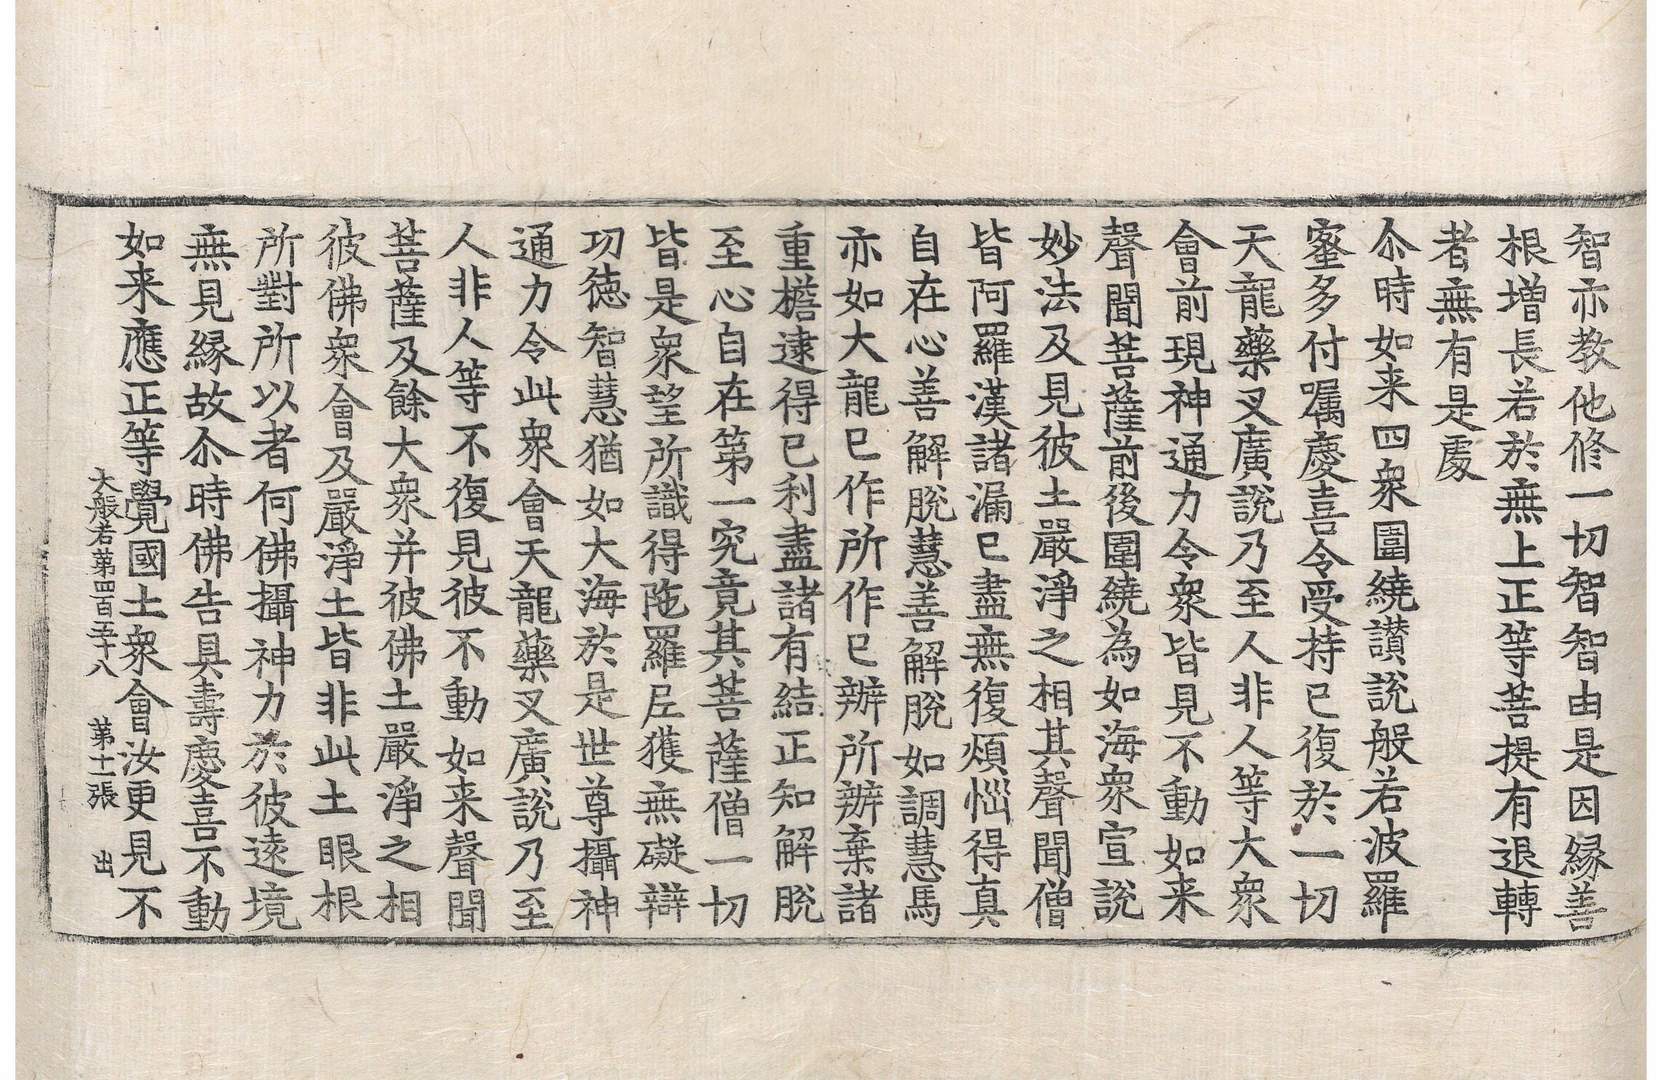 智亦教他修一切智智由是因縁善
根增長若於無上正等菩提有退轉
者無有是處
尒時如来四衆圍繞讃說般若波羅
蜜多付囑慶喜令受持已復於一切
天龍藥叉廣說乃至人非人等大衆
會前現神通力令衆皆見不動如来
聲聞菩薩前後圍繞為如海衆宣說
妙法及見彼土嚴淨之相其聲聞僧
皆阿羅漢諸漏已盡無復煩惱得真
自在心善解脫慧善解脫如調慧馬
亦如大龍已作所作已辦所辦棄諸
重檐逮得已利盡諸有結正知解脫
至心自在第一究竟其菩薩僧一切
皆是衆望所識得陁羅尼獲無礙辯
功德智慧猶如大海於是世尊攝神
通力令此衆會天龍藥叉廣說乃至
人非人等不復見彼不動如来聲聞
菩薩及餘大衆并彼佛土嚴淨之相
彼佛衆會及嚴淨土皆非此土眼根
所對所以者何佛攝神力於彼遠境
無見縁故尒時佛告具壽慶喜不動
如来應正等覺國土衆會汝更見不
大般若第四百五十八 第十一張 出